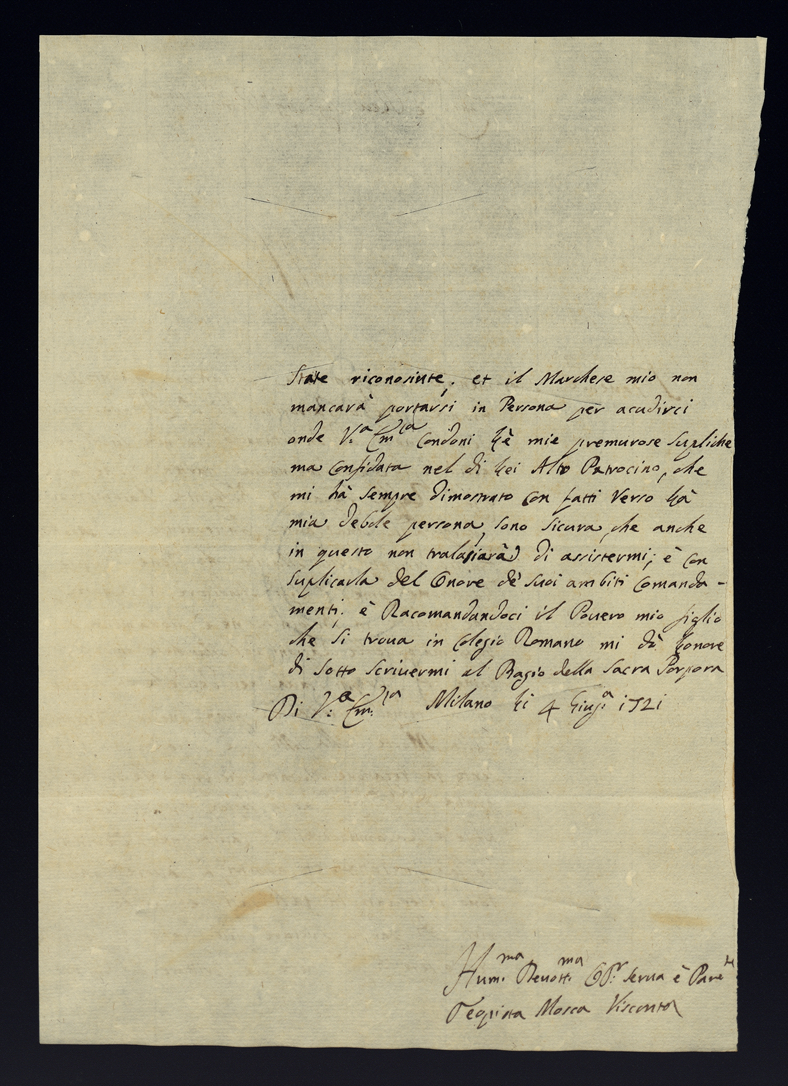 State riconosiute, et il Marchese mio non
mancarà portarsi in Persona per acudirci
onde V.ª Em.ᶻᵃ Condoni lè mie premurose Supliche
ma Confidata nel di Lei Alto Patrocino, che
mi hà Sempre dimostrato Con fatti Verso la
mia debole persona, sono Sicura, che anche
in questo non tralasiarà di assistermi; è Con
Suplicarla del Onore dè Suoi ambiti Comanda-
menti. è Racomandandoci il Pouero mio figlio
che Si troua in Colegio Romano mi dò l'onore
di Sotto Scriuermi al Bagio della Sacra Porpora
Di V.ª Em.ᶻᵃ Milano li 4 Giug.º 1721
Hum.ᵐᵃ Deuott.ᵐᵃ Serua è Pare.ᵗᵉ
Mosca Visconti